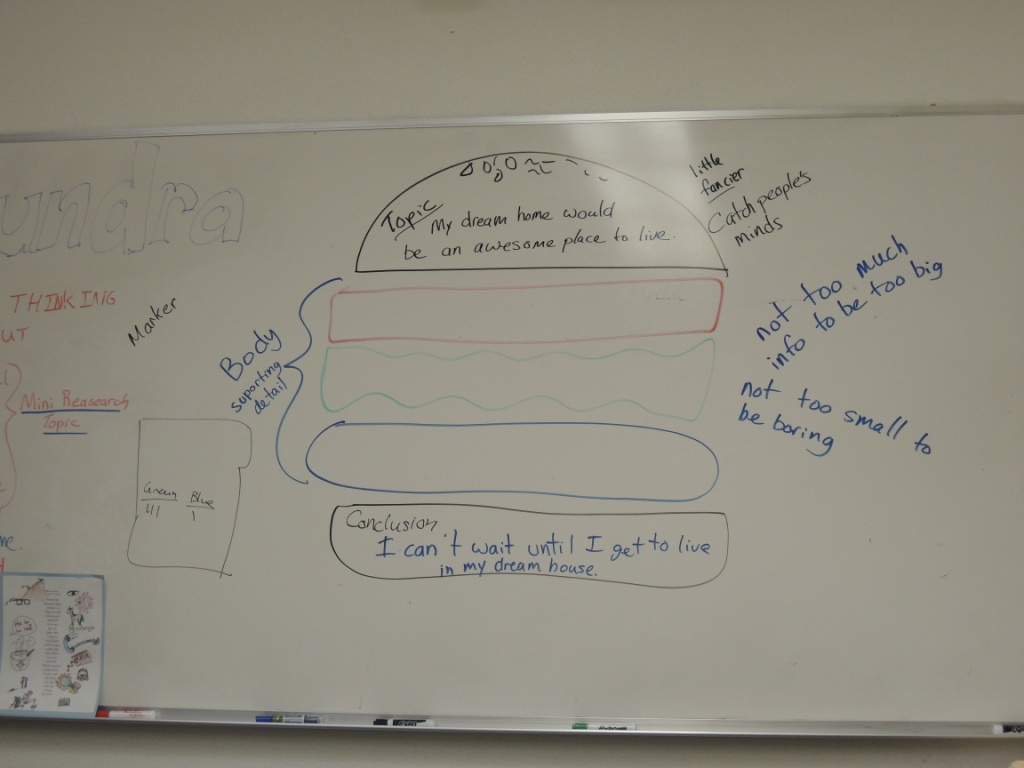 undra
THINKING
UT
Mini Reasearch
Topic
Marker
Green Blue
III I
me.
Topic My dream home would
be an awesome place to live.
little
fancier
Catch people's
minds
Body
suporting
detail
not too much
info to be too big
not too small to
be boring
Conclusion
I can't wait until I get to live
in my dream house.